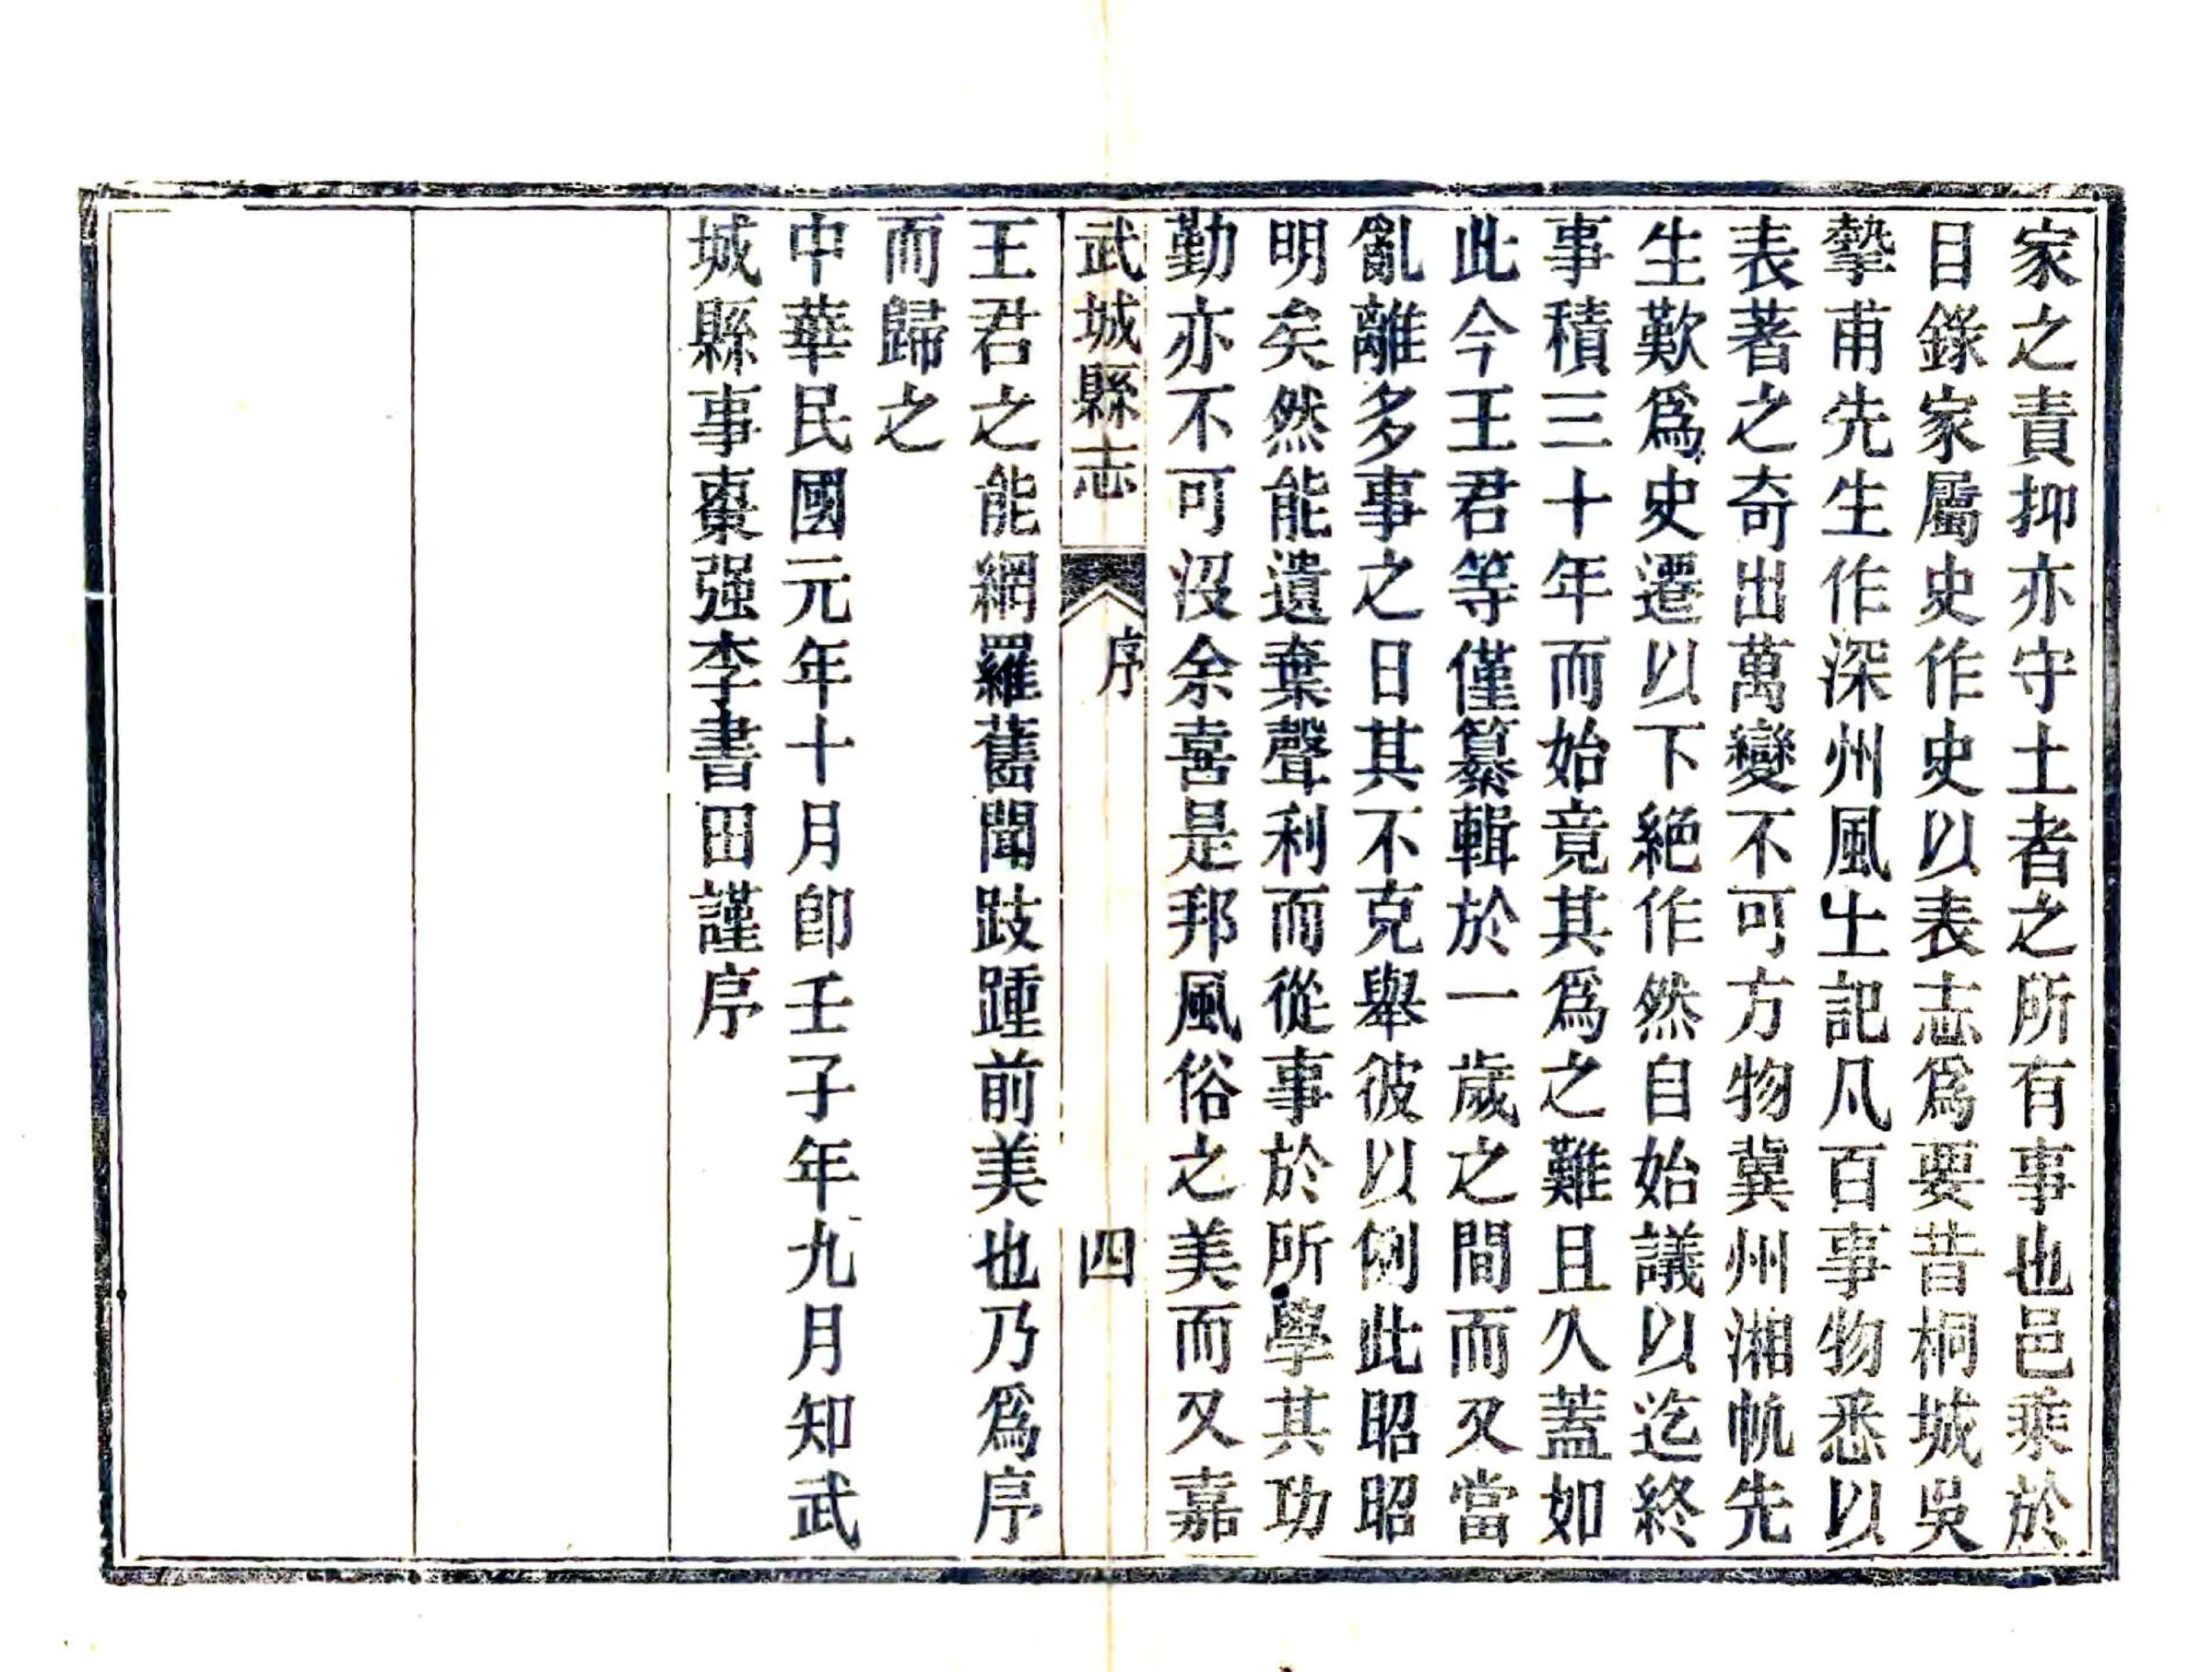 家之責抑亦守土者之所有事也邑乘於
目錄家屬史作史以表志爲要昔桐城吳
摯甫先生作深州風土記凡百事物悉以
表著之奇出萬變不可方物冀州湘帆先
生歎爲史遷以下絕作然自始議以迄終
事積三十年而始竟其爲之難且久蓋如
此今王君等僅纂輯於一歲之間而又當
亂離多事之日其不克舉彼以例此昭昭
明矣然能遺棄聲利而從事於所學其功
勤亦不可沒余喜是邦風俗之美而又嘉
武城縣志 序 四
王君之能網羅舊聞跂踵前美也乃爲序
而歸之
中華民國元年十月卽壬子年九月知武
城縣事棗强李書田謹序